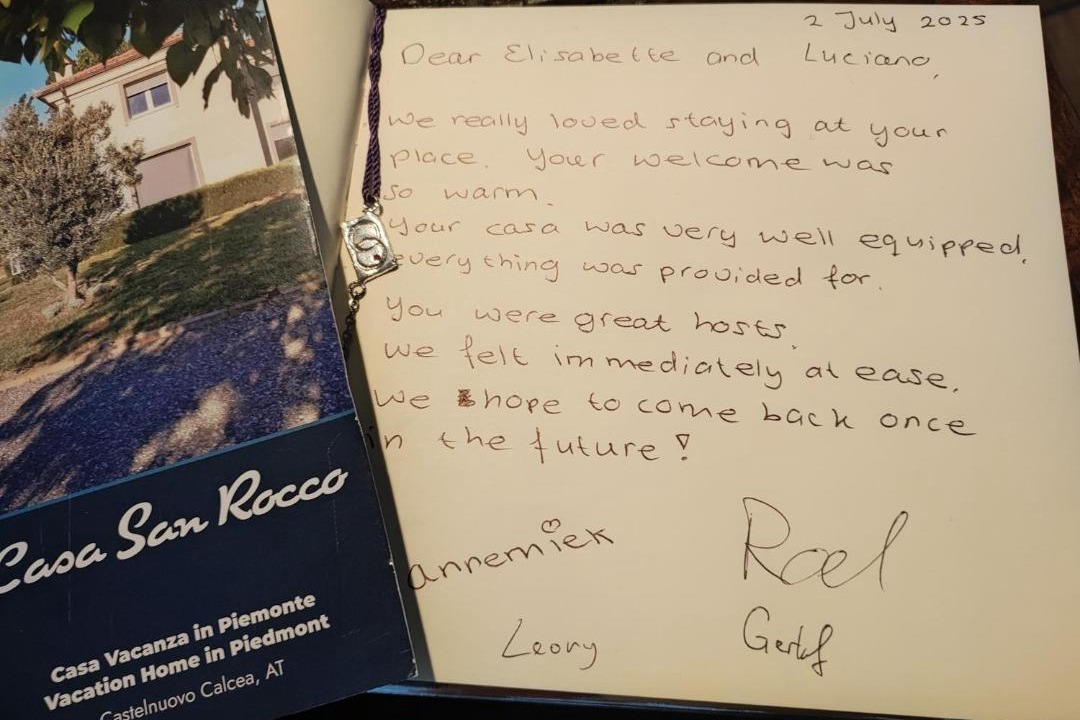 2 July 2025
Dear Elisabette and Luciano,
We really loved staying at your
place. Your welcome was
so warm.
Your casa was very well equipped,
everything was provided for.
You were great hosts.
We felt immediately at ease.
We hope to come back once
in the future!
annemiek
Roel
Leory
Casa San Rocco
Casa Vacanza in Piemonte
Vacation Home in Piedmont
Castelnuovo Calcea, AT